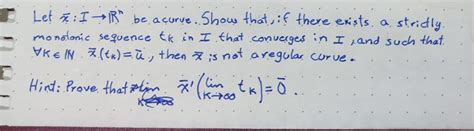 Let x̄: I → ℝⁿ be a curve. Show that, if there exists a strictly
monotonic sequence tₖ in I that converges in I, and such that
∀K∈ℕ x̄(tₖ)=ū, then x̄ is not a regular curve.
Hint: Prove that x̄'(lim K→∞ tₖ)=0̄.